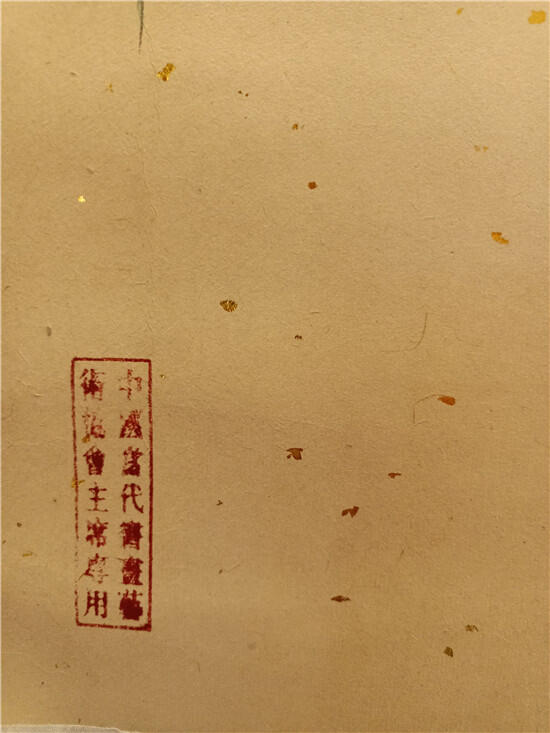 中國當代書畫藝
術協會主席專用